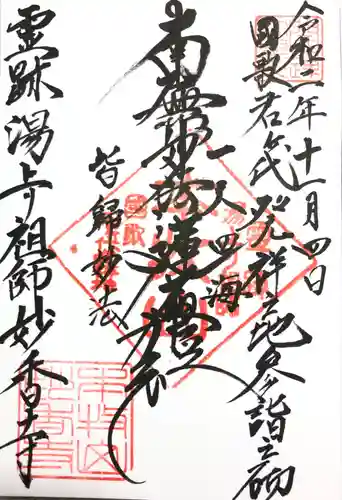 令和二年十一月四日
國歌君が代発祥之地参詣之砌
一天四海
南無妙法蓮華経
皆歸妙法
霊跡湯上り祖師妙香寺